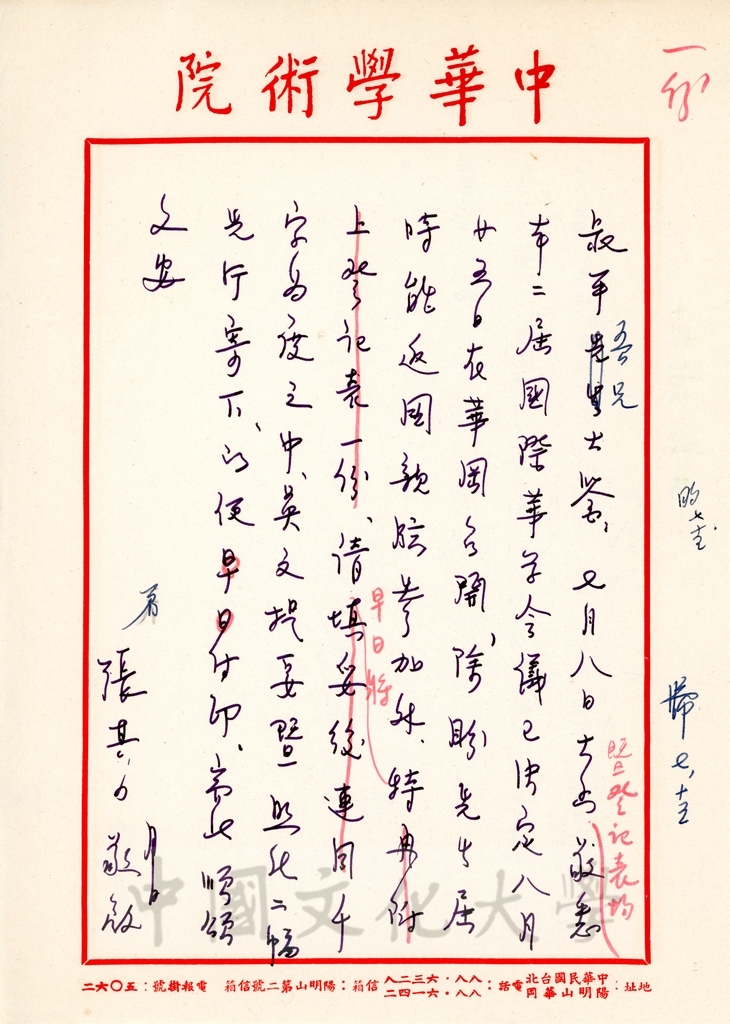 中華學術院
一份
叔平吾兄大鑒、七月八日大函敬悉
暨登記表均
本二屆國際華學會議已決定八月
廿五日在華岡召開、除盼先生屆
時能返國親臨參加外、特再附
上登記表一份、請填妥後連同千
早日將
字為度之中、英文提要暨照片二幅
先行寄下、以便早日付印、耑此順頌
文安
張其昀敬啟
月 日
中國文化大學
地址：中華民國台北陽明山華岡 電話：八八·六三二八 八八·六一四二 信箱：陽明山第二號信箱 電報掛號：五〇六二